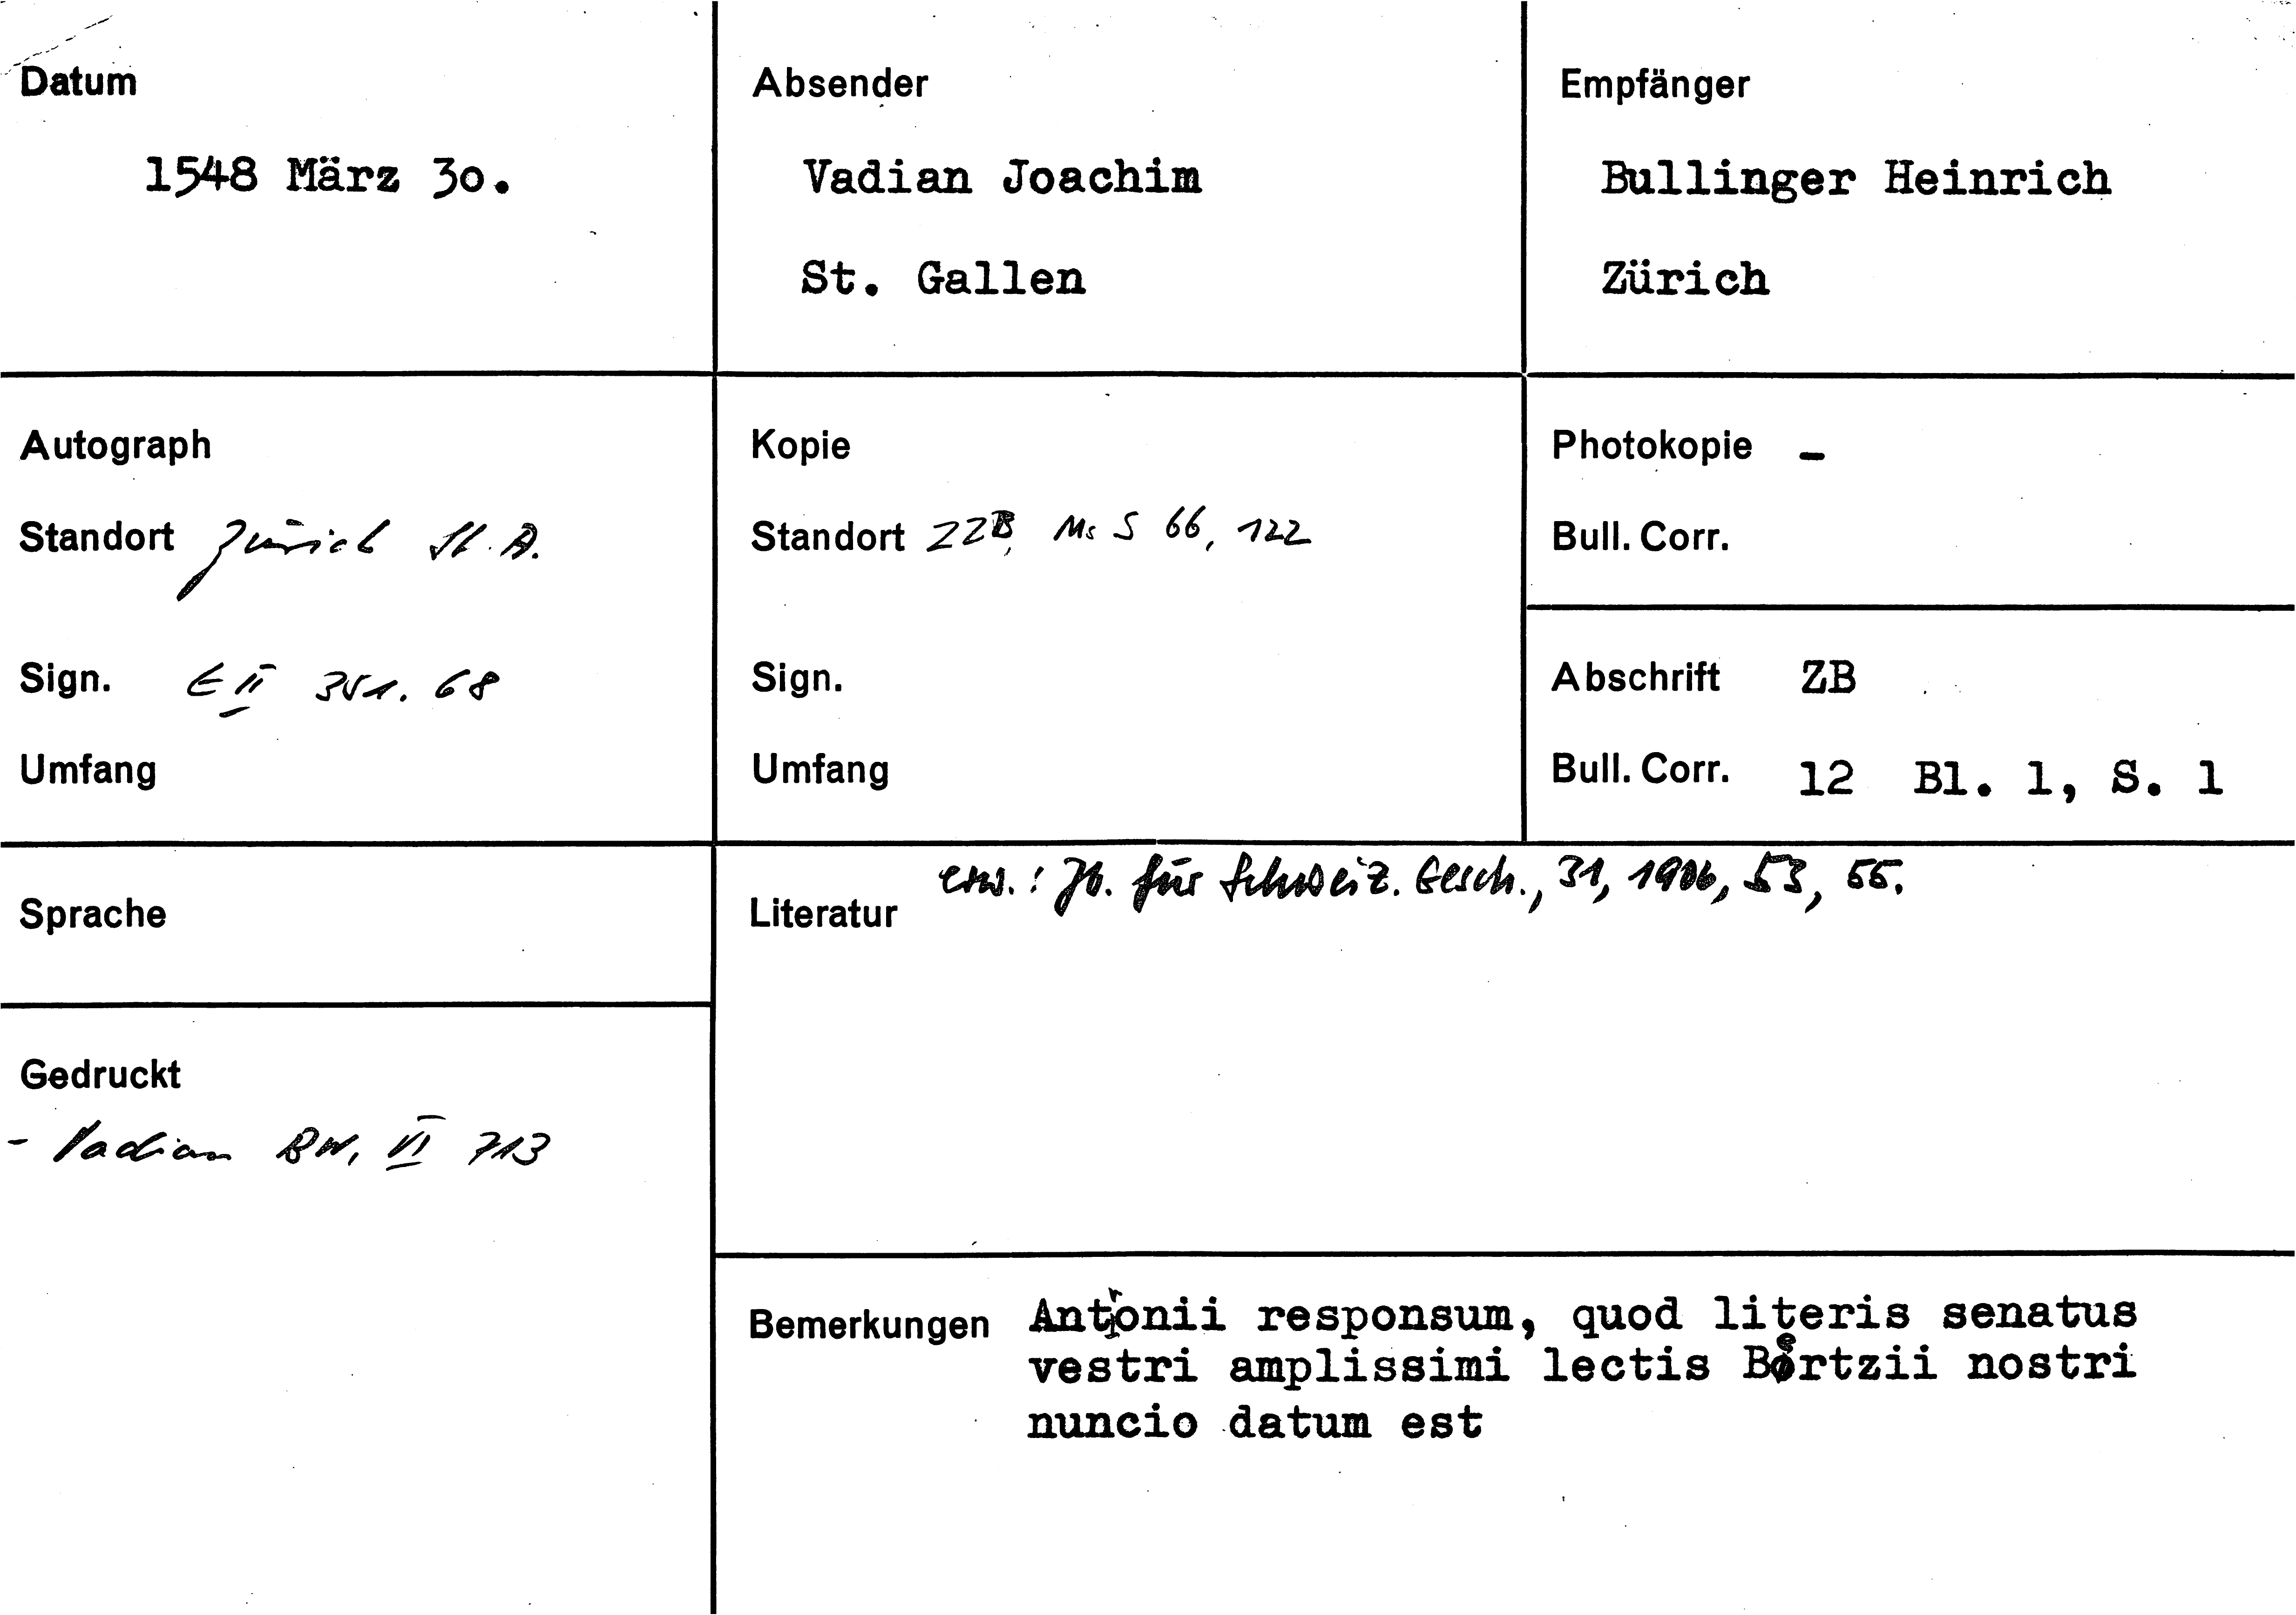 Datum
1548 März 30.
Absender
Vadian Joachim
St. Gallen
Empfänger
Bullinger Heinrich
Zürich
Autograph
Standort Zürich St. A.
Sign. E II 351. 68
Umfang
Kopie
Standort ZZB, Ms S 66, 122
Sign.
Umfang
Photokopie -
Bull. Corr.
Abschrift ZB
Bull. Corr. 12 Bl. 1, S. 1
Sprache
Literatur erw.: Jb. für Schweiz. Gesch., 31, 1906, 53, 55.
Gedruckt
- Vadian BW, VI 713
Bemerkungen Antonii responsum, quod literis senatus
vestri amplissimi lectis Bertzii nostri
nuncio datum est